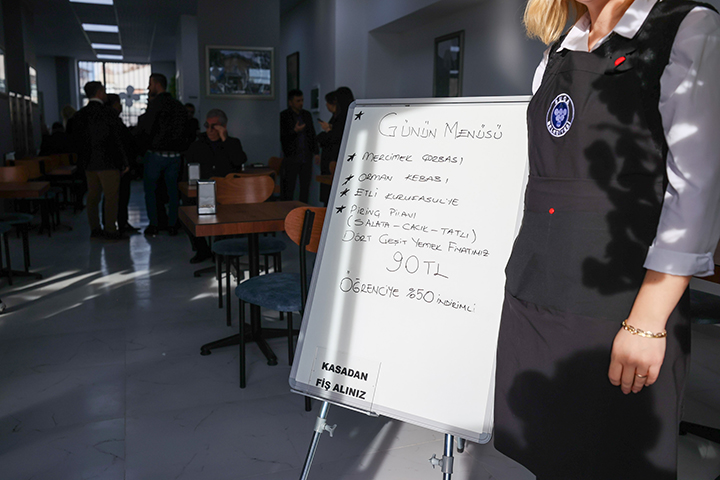 GÜNÜN MENÜSÜ
MERCİMEK ÇORBASI
ORMAN KEBABI
ETLİ KURUFASULYE
PİRİNÇ PİLAVI
(SALATA-CACIK-TATLI)
DÖRT ÇEŞİT YEMEK FİYATINIZ
90 TL
ÖĞRENCİYE %50 İNDİRİMLİ
KASADAN
FİŞ ALINIZ